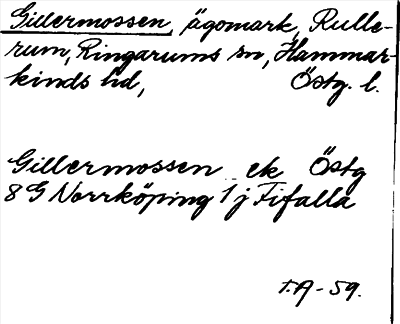 Gillermossen, ägomark, Rulle-
rum, Ringarums sn, Hammar-
kinds hd, Östg. l.
Gillermossen ek Östg
8 G Norrköping 1 j Fifalla
T.A - 59.